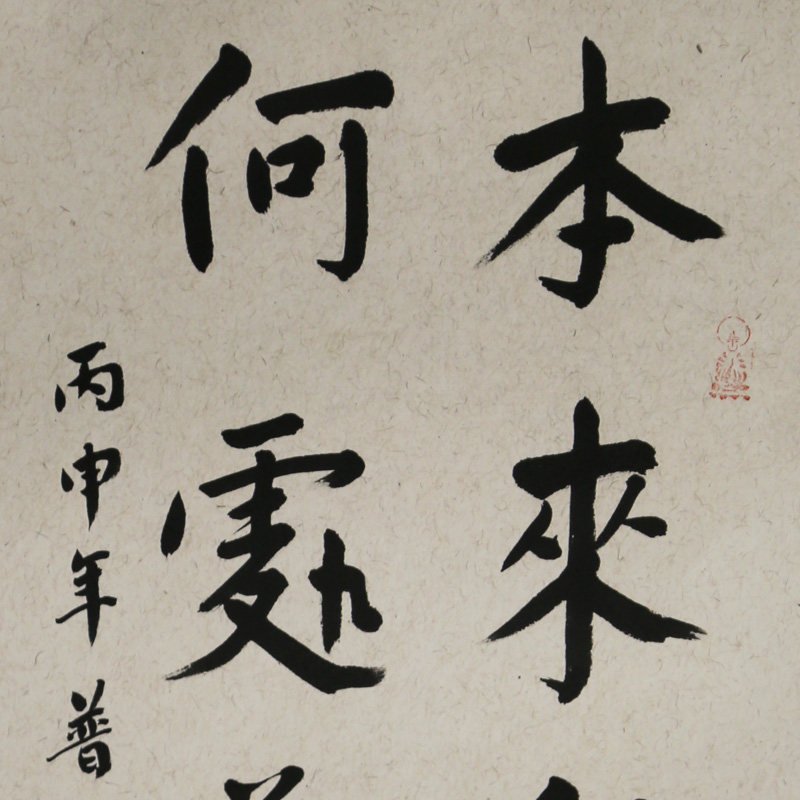 本來
何處
丙申年普